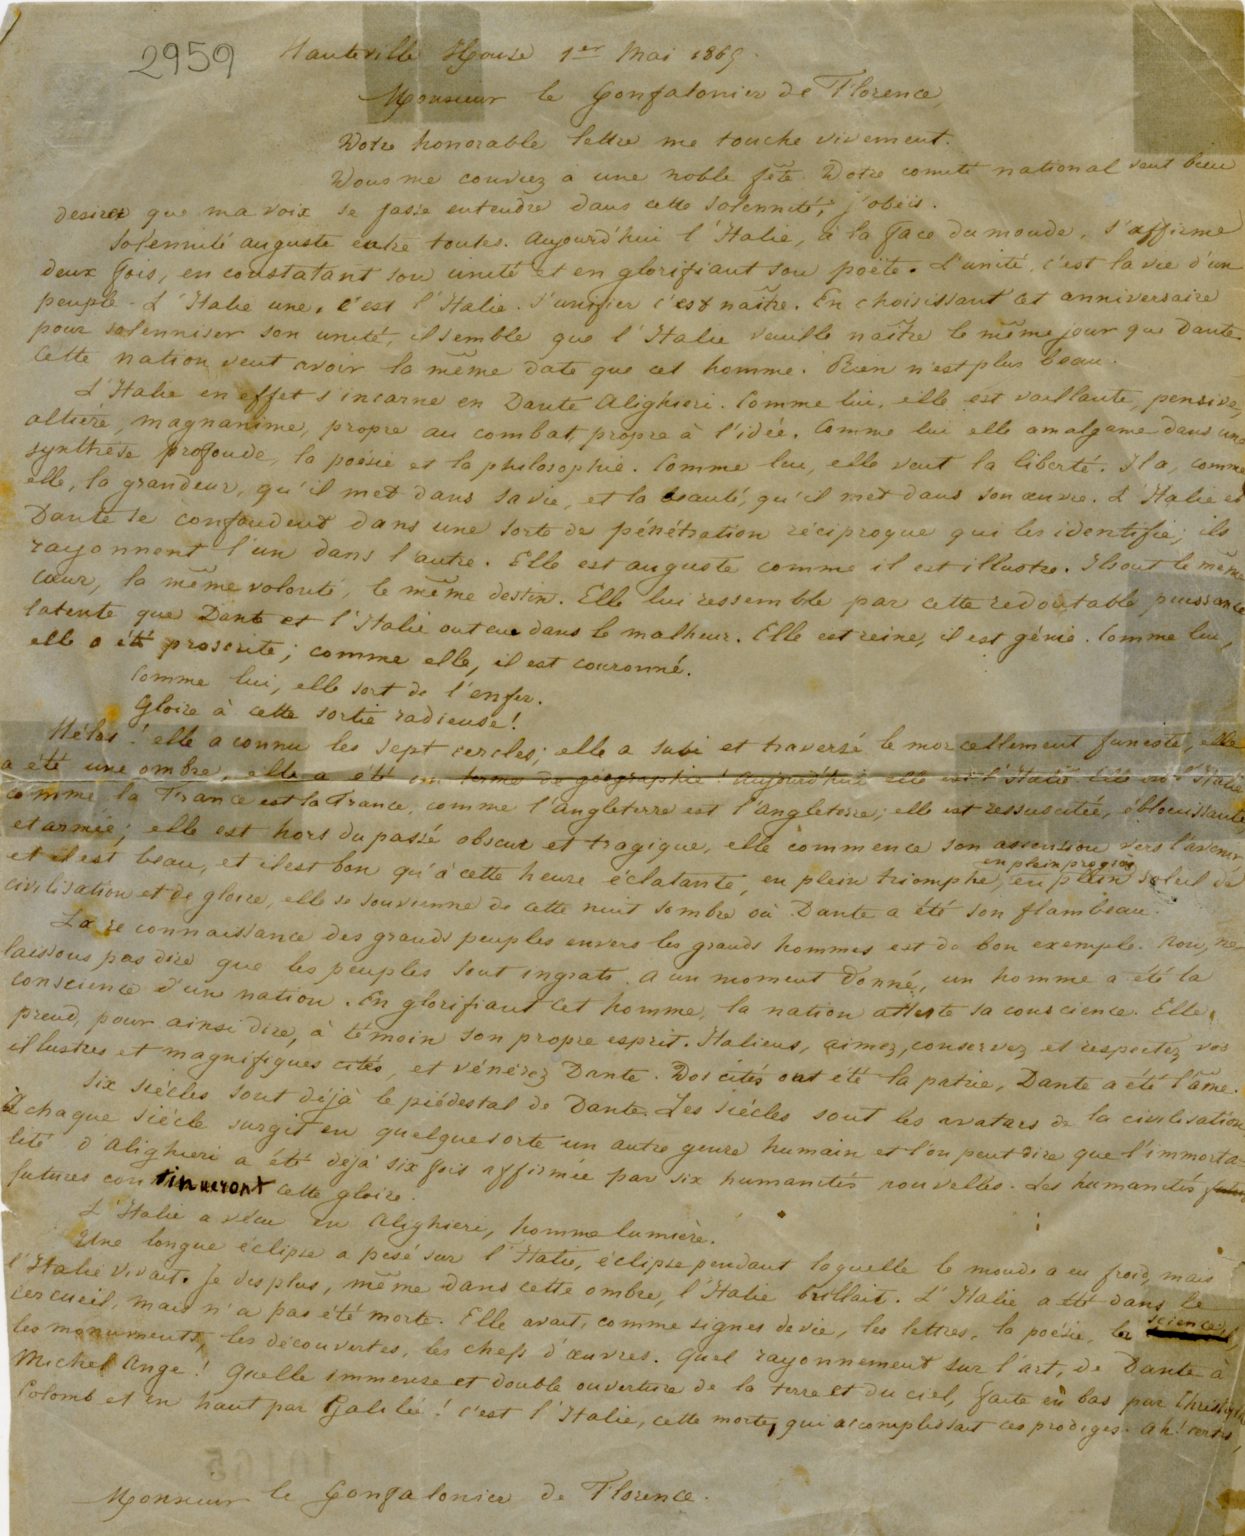 2959
Hauteville House 1er Mai 1865.
Monsieur le Gonfalonier de Florence,
Votre honorable lettre me touche vivement.
Vous me conviez à une noble fête. Votre comité national veut bien
desirer que ma voix se fasse entendre dans cette solennité, j'obéis.
Solennité auguste entre toutes. Aujourd'hui l'Italie, à la face du monde, s'affirme
deux fois, en constatant son unité et en glorifiant son poëte. L'unité, c'est la vie d'un
peuple. L'Italie une, c'est l'Italie. S'unifier c'est naître. En choisissant cet anniversaire
pour solenniser son unité, il semble que l'Italie veuille naître le même jour que Dante.
Cette nation veut avoir la même date que cet homme. Rien n'est plus beau.
L'Italie en effet s'incarne en Dante Alighieri. Comme lui, elle est vaillante, pensive,
altière, magnanime, propre au combat, propre à l'idée. Comme lui elle amalgame dans une
synthèse profonde, la poésie et la philosophie. Comme lui, elle veut la liberté. Il a, comme
elle, la grandeur, qu'il met dans sa vie, et la beauté, qu'il met dans son œuvre. L'Italie et
Dante se confondent dans une sorte de pénétration réciproque qui les identifie; ils
rayonnent l'un dans l'autre. Elle est auguste comme il est illustre. Ils ont le même
cœur, la même volonté, le même destin. Elle lui ressemble par cette redoutable puissance
latente que Dante et l'Italie ont eue dans le malheur. Elle est reine, il est génie. Comme lui,
elle a été proscrite; comme elle, il est couronné.
Comme lui, elle sort de l'enfer.
Gloire à cette sortie radieuse!
Hélas! elle a connu les sept cercles; elle a subi et traversé le morcellement funeste, elle
a été une ombre, elle a été un terme de géographie! Aujourd'hui elle est l'Italie. Elle est l'Italie
comme la France est la France, comme l'Angleterre est l'Angleterre; elle est ressuscitée, éblouissante
et armée; elle est hors du passé obscur et tragique, elle commence son ascension vers l'avenir
et il est beau, et il est bon qu'à cette heure éclatante, en plein triomphe, en plein progrès, en plein soleil de
civilisation et de gloire, elle se souvienne de cette nuit sombre où Dante a été son flambeau.
La reconnaissance des grands peuples envers les grands hommes est de bon exemple. Non, ne
laissons pas dire que les peuples sont ingrats. A un moment donné, un homme a été la
conscience d'une nation. En glorifiant cet homme, la nation atteste sa conscience. Elle
prend, pour ainsi dire, à témoin son propre esprit. Italiens, aimez, conservez et respectez vos
illustres et magnifiques cités, et vénérez Dante. Vos cités ont été la patrie, Dante a été l'âme.
Six siècles sont déjà le piédestal de Dante. Les siècles sont les avatars de la civilisation.
À chaque siècle surgit en quelque sorte un autre genre humain et l'on peut dire que l'immorta-
lité d'Alighieri a été déjà six fois affirmée par six humanités nouvelles. Les humanités
futures continueront cette gloire.
L'Italie a vécu en Alighieri, homme lumière.
Une longue éclipse a pesé sur l'Italie, éclipse pendant laquelle le monde a eu froid, mais
l'Italie vivait. Je dis plus, même dans cette ombre, l'Italie brillait. L'Italie a été dans le
cercueil, mais n'a pas été morte. Elle avait, comme signes de vie, les lettres, la poésie, les sciences,
les monuments, les découvertes, les chefs d'œuvres. Quel rayonnement sur l'art, de Dante à
Michel Ange! Quelle immense et double ouverture de la terre et du ciel, faite en bas par Christophe
Colomb et en haut par Galilée! C'est l'Italie, cette morte, qui accomplissait ces prodiges. Ah! certes,
Monsieur le Gonfalonier de Florence.